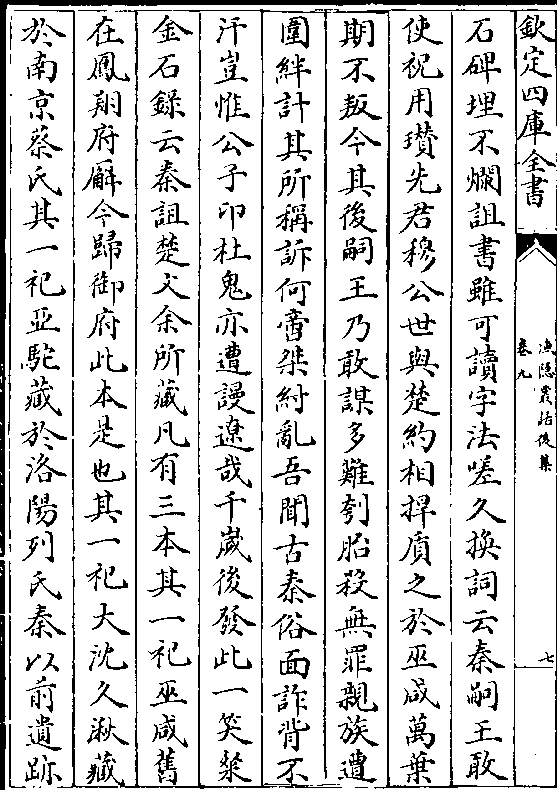 欽定四庫全書
漁隱叢話後集
卷九
七
石碑埋不爛詛書雖可讀字法嗟久換詞云秦嗣王敢
使祝用瓚先君穆公世與楚約相捍質之於巫咸萬葉
期不叛今其後嗣王乃敢謀多難刳胎殺無罪親族遭
圍絆計其所稱訴何啻桀紂亂吾聞古秦俗面詐背不
汗豈惟公子卬杜鬼亦遭謾遼哉千歲後發此一笑粲
金石錄云秦詛楚文余所藏凡有三本其一祀巫咸舊
在鳳翔府廨今歸御府此本是也其一祀大沈久湫藏
於南京蔡氏其一祀亞駝藏於洛陽列氏秦以前遺跡